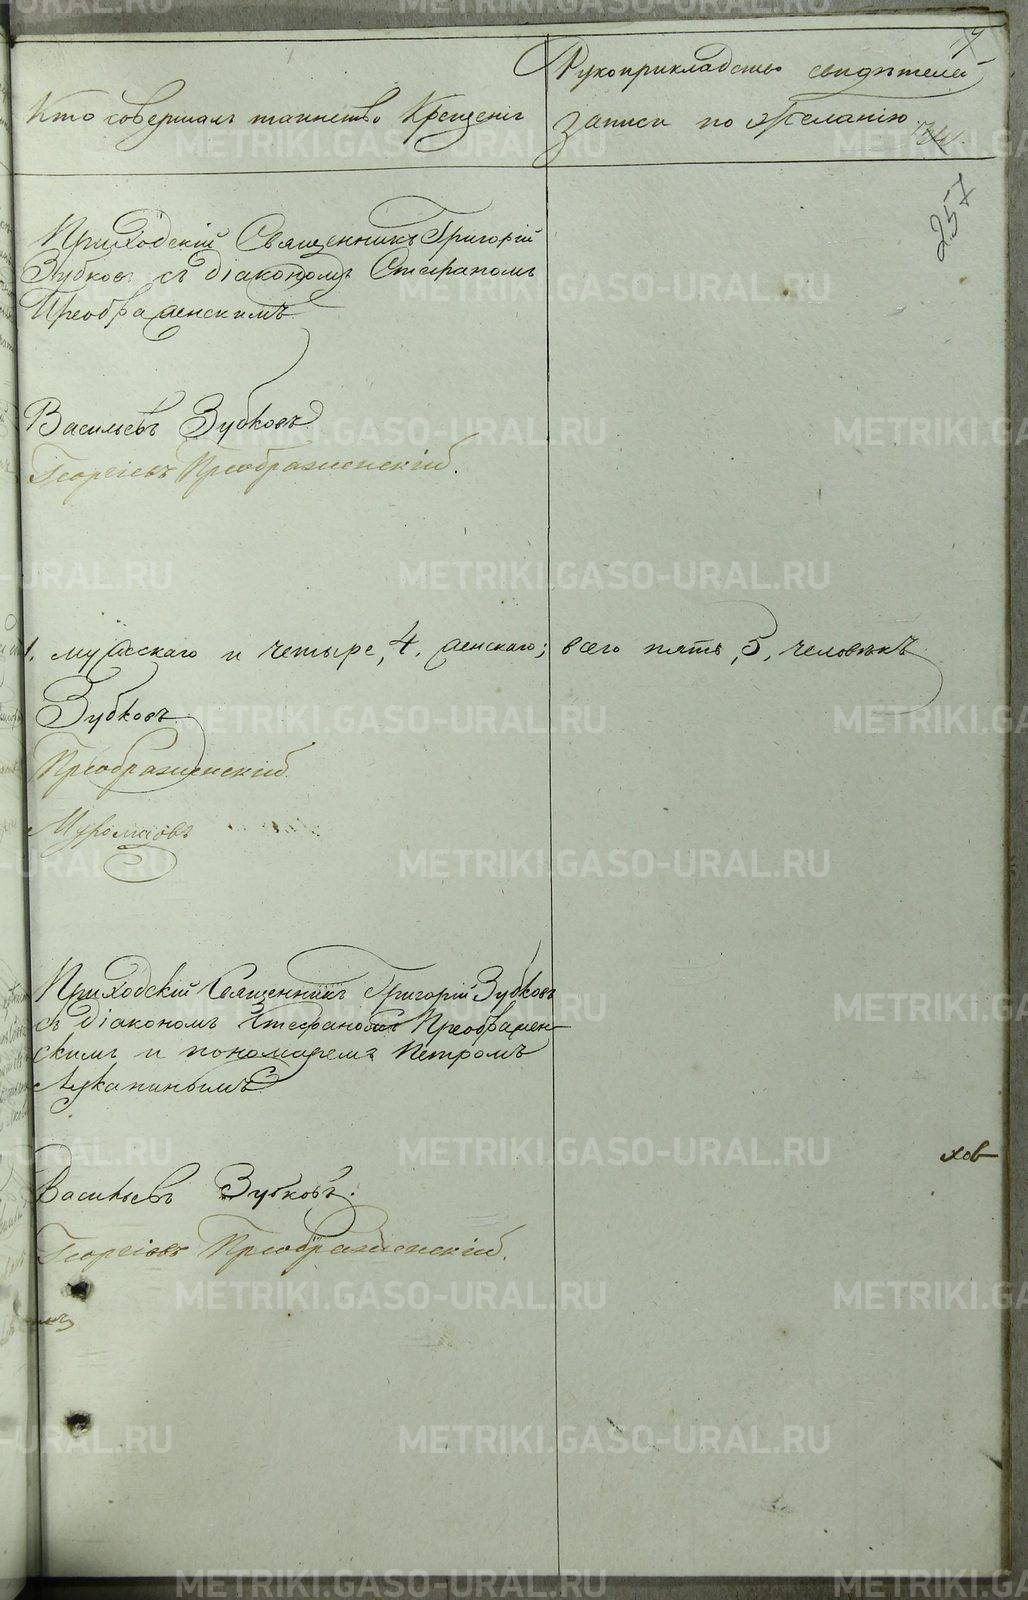 Кто совершалъ таинство Крещенія
Рукоприкладство свидѣтелей
записи по желанію
257
Приходскій Священникъ Григорій
Зубковъ съ діакономъ Стефаномъ
Преображенскимъ
Васильевъ Зубковъ
Георгіевъ Преображенскій.
1. мужескаго и четыре, 4, женскаго; всего пять, 5, человѣкъ
Зубковъ
Преображенскій
Муромцовъ
Приходскій Священникъ Григорій Зубковъ
съ діакономъ Стефаномъ Преображен-
скимъ и пономаремъ Петромъ
Луканинымъ
Васильевъ Зубковъ.
Георгіевъ Преображенскій.
METRIKI.GASO-URAL.RU